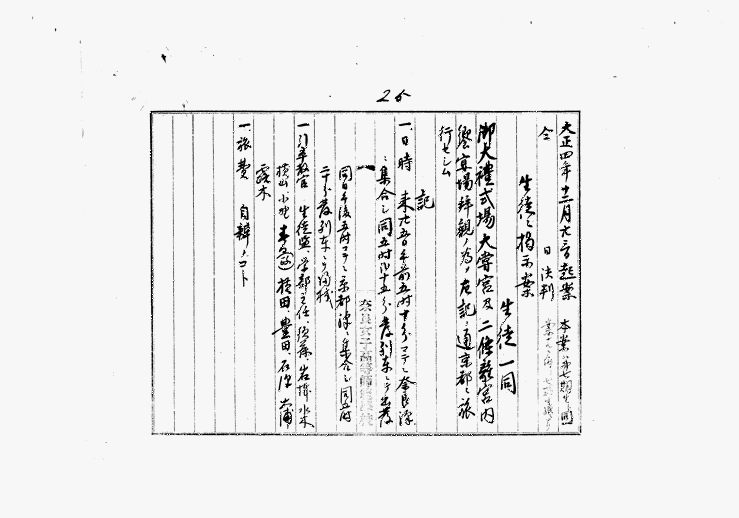 26
大正四年十二月六日起案
仝 日決判
生徒ヘ掲示案
生徒一同
御大禮式場大嘗宮及二條離宮内
饗宴場拜観ノ為メ左記ノ通京都ヘ旅
行セシム
記
一、日時 来九日午前五時十分マテニ奈良驛
ニ集合シ同五時二十五分發列車ニテ出發
同日午後五時マテニ京都驛ニ集合シ同五時
二十分發列車ニテ帰校
一、引率教官 生徒監、学部主任、須藤、岩城、水木
横山、小野 横田、豊田、石澤、大浦
露木
一、旅費 自辨ノコト
奈良女子高等師範學校